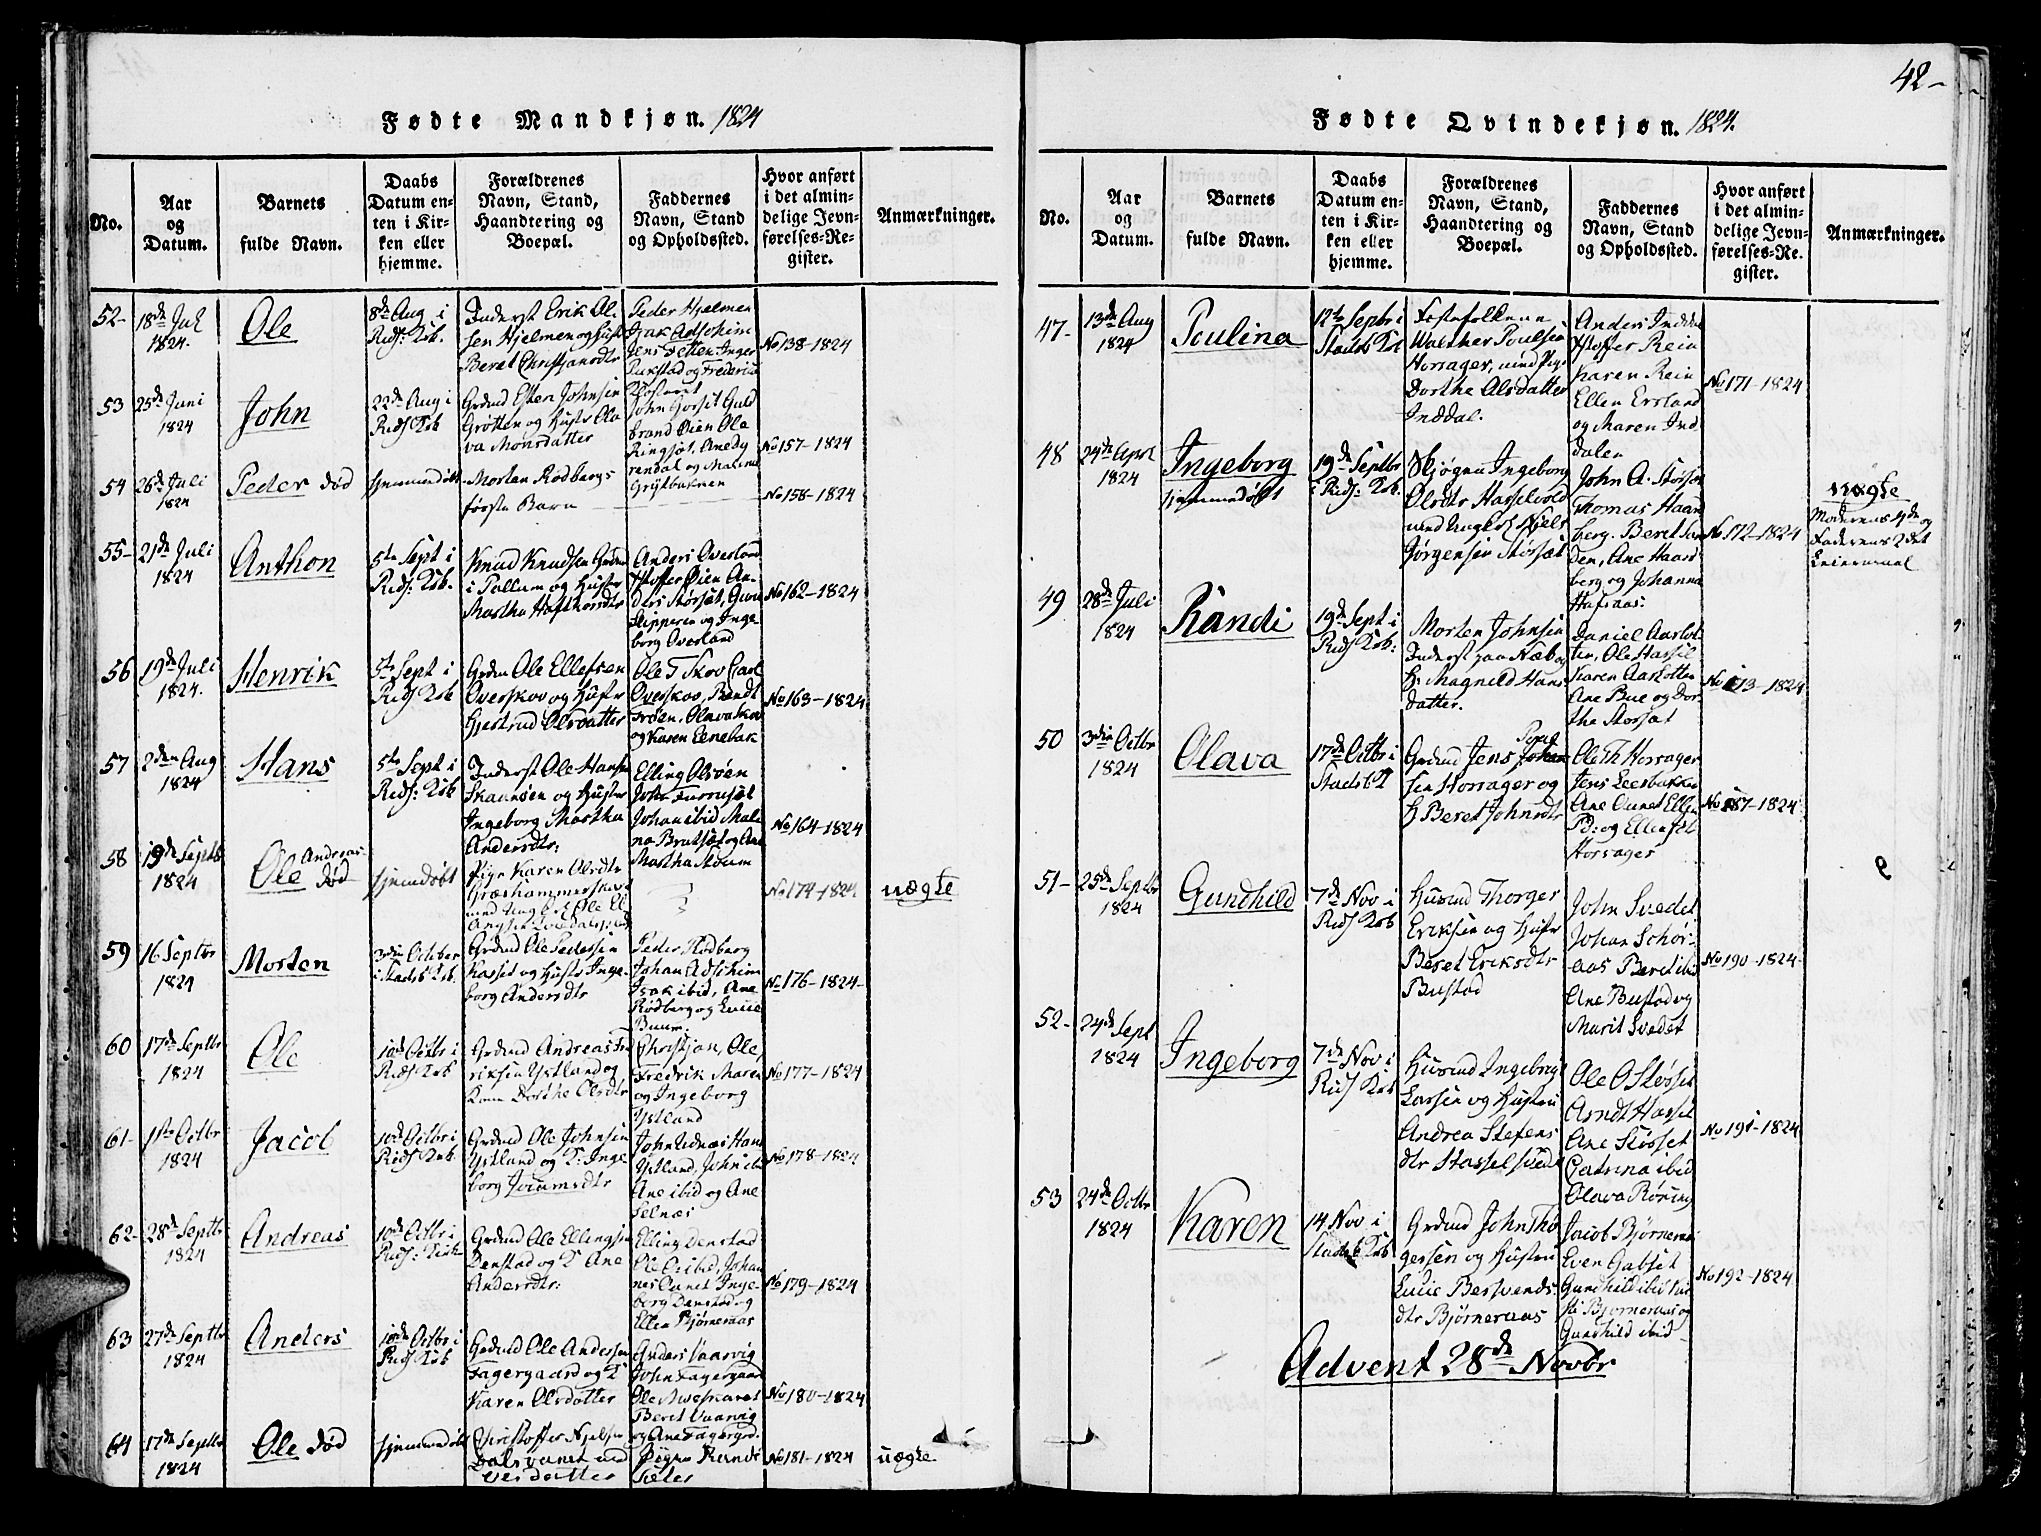 42-
Fødte Mandkjøn. 1824
No.
Aar
og
Datum.
Barnets
fulde Navn.
Daabs
Datum en-
ten i Kir-
ken eller
hjemme.
Forældrenes
Navn, Stand,
Haandtering og
Boepæl.
Faddernes
Navn, Stand
og Opholdssted.
Hvor anført
i det almin-
delige Jevn-
førelses-Re-
gister.
Anmærkninger.
52-
18de Juli
1824.
Ole
8de Aug i
Rids: Krk.
Inderst Erik Ol-
sen Hjelmen og Hustr
Beret Christjansdtr
Peder Hjelmen
Isak Adschim
Jens Tetten Inger
og Frederica
No 138-1824
53
25de Juni
1824
John
22de Aug i
Rids Krk
Grdmd Esten Johnsen
Grøtten og Hustr Ola
va Monsdatter
John Gorsit Guld
brand Øien Ole
Ringsæt, Ane Dy
rendal og Malene
Grytbakken
No 157-1824
54
26de Juli
1824
Peder død
hjemmedøbt
Morten Rodbergs
første Barn
No 158-1824
55-
21de Juli
1824
Anthon
5te Sept i
Rids: Krk.
Knud Knudsen Grdmd
i Pallum og Hustr
Martha Hafthorsdtr
Anders Overland
Stoffer Øien An-
ders Storsæt, Guru
Slipperen og Inge-
borg Overland
No 162-1824
56
19de Juli
1824.
Henrik
5te Sept i
Rids Krk
Grdmd Ole Ellefsen
Overskov og Hustr
Gjertrud Olsdatter
Ole T Skov Carl
Overskov, Bendt
Frøen, Olava Skov
og Karen Elnebak
No 163-1824
57
2den Aug
1824
Hans
5te Sept i
Rids: Krk
Inderst Ole Hansen
Skaunsen og Hustr
Ingeborg Martha
Andersdtr:
Elling Olsøen
John Furruset
Johan ibid Male
na Brutsæt og Ane
Martha Stoum
No 164-1824
58
19de Septbr
1824
Ole Andreas
død
hjemdøbt
Pige Karen Olsdtr
Græshammerskov
med Ungk: Ole El
No 174-1824.
uægte
59
16 Septbr
1824
Morten
3die October
i Stads Krk.
Grdmd Ole Pedersen
Kasset og Hustr Inge-
borg Andersdtr
Peder Rodberg
Johan Adschim
Isak ibid, Ane
Rødberg og Lucie
Buum.
No 176-1824-
60
17de Septbr
1824
Ole
10de Octbr i
Rids Krk
Grdmd Andreas Fre
riksen Ystland og
Kone Dorthe Olsdtr
Christjan, Ole,
Fredrik Maren
og Ingeborg
Ystland
No 177-1824
61-
1ste Octbr
1824
Jacob
10de Octbr i
Rids Krk.
Grdmd Ole Johnsen
Ystland og K: Inge-
borg Joramsdtr
John Udnæs Hans
Ystland, John ibd
Ane ibid og Ane
Selnæs
No 178-1824
62-
28de Septbr
1824
Andreas
10de Octbr i
Rids: Kirk
Grdmd Ole Ellingsen
Denstad og K Ane
Andersdtr:
Elling Denstad
Ole O ibid, Johan
nes Aunet Inge-
borg Denstad og
Ellen Bjørneraas
No 179-1824
63
27de Septbr
1824
Anders
10de Octbr i
Rids Krk
Grdmd Ole Andersen
Fagergaard og K
Karen Olsdatter
Anders Vaarvig
John Fagergaard
Ole Moesmaret
Beret Vaarvig
og Ane Fagergrd.
No 180-1824
64
17de Septbr
1824
Ole død
hjemmedøbt
Christoffer Njelsen
Dalsaunet med
No 181-1824
uægte
Fødte Qvindekjøn. 1824.
No.
Aar
og
Datum.
Barnets
fulde Navn.
Daabs
Datum en-
ten i Kir-
ken eller
hjemme.
Forældrenes
Navn, Stand,
Haandtering og
Boepæl.
Faddernes
Navn, Stand
og Opholdssted.
Hvor anført
i det almin-
delige Jevn-
førelses-Re-
gister.
Anmærkninger.
47-
13de Aug
1824
Poulina
12te Septbr i
Stads Krk
Festefolkene
Walther Poulsen
Horrager, med Pige
Dorthe Olsdatter
Inddal.
Anders Inddal
Stoffer Rein
Karen Rein
Ellen Ersland
og Maren Ind
dalen
No 171-1824
48
24de April
1824
Ingeborg
hjemmedøbt
19de Septbr
i Rids: Krk.
Skjøgen Ingeborg
Olsdtr Hasselvold
med Ungkl Njels
Jørgensen Storsæt
John A. Storsæt
Thomas Haan
berg. Beret San
den, Ane Haand
berg og Johanna
Hafsaas:
No 172-1824
uægte
Moderens 4de og
Faderens 2det
Leiermaal
49
28de Juli
1824
Randi
19de Sept i
Rids Krk:
Morten Johnsen
Inderst paa Næb og
H: Magnild Hans
datter.
Daniel Aarlot-
ten, Ole Hassel
Karen Aarlotten
Ane Bue og Dor-
the Storsæt
No 173-1824
50
3die Octbr
1824
Olava
17de Octbr i
Stads K
Grdmd Jens Johan
sen Horrager og
H Beret Johnsdtr
Ole Th Horrager
Jens Leerbakken
Ane Aunet Ellen
Pd: og Ellen sst
Horrager
No 187-1824
51-
25de Septbr
1824
Gundhild
7de Nov i
Rids Krk
Husmd Thorger
Eriksen og Hustr
Beret Eriksdtr
Bustad
John Svedet
Johan Schør-
aas Beret ibid
Ane Bustad og
Marit Svedet
No 190-1824-
52-
24de Sept
1824
Ingeborg
7de Nov i
Rids Krk
Husmd Ingebrigt
Larsen og Hustru
Andrea Stefens
dtr Hasselsvedet
Ole O Støsset
Arndt Hassel
Ane Støsset
Catrina ibid
Olava Røning
No 191-1824
53
24de Octbr
1824
Karen
14 Nov i
Stads Krk
Grdmd John Tho
gersen og Hustru
Lucie Bersvends
dtr Bjørneraas
Jacob Bjørneraas
Even Gabset
Gundhild ibid Kir
sti Bjørneraas og
Gundhild ibid-
No 192-1824
Advent 28de Novbr